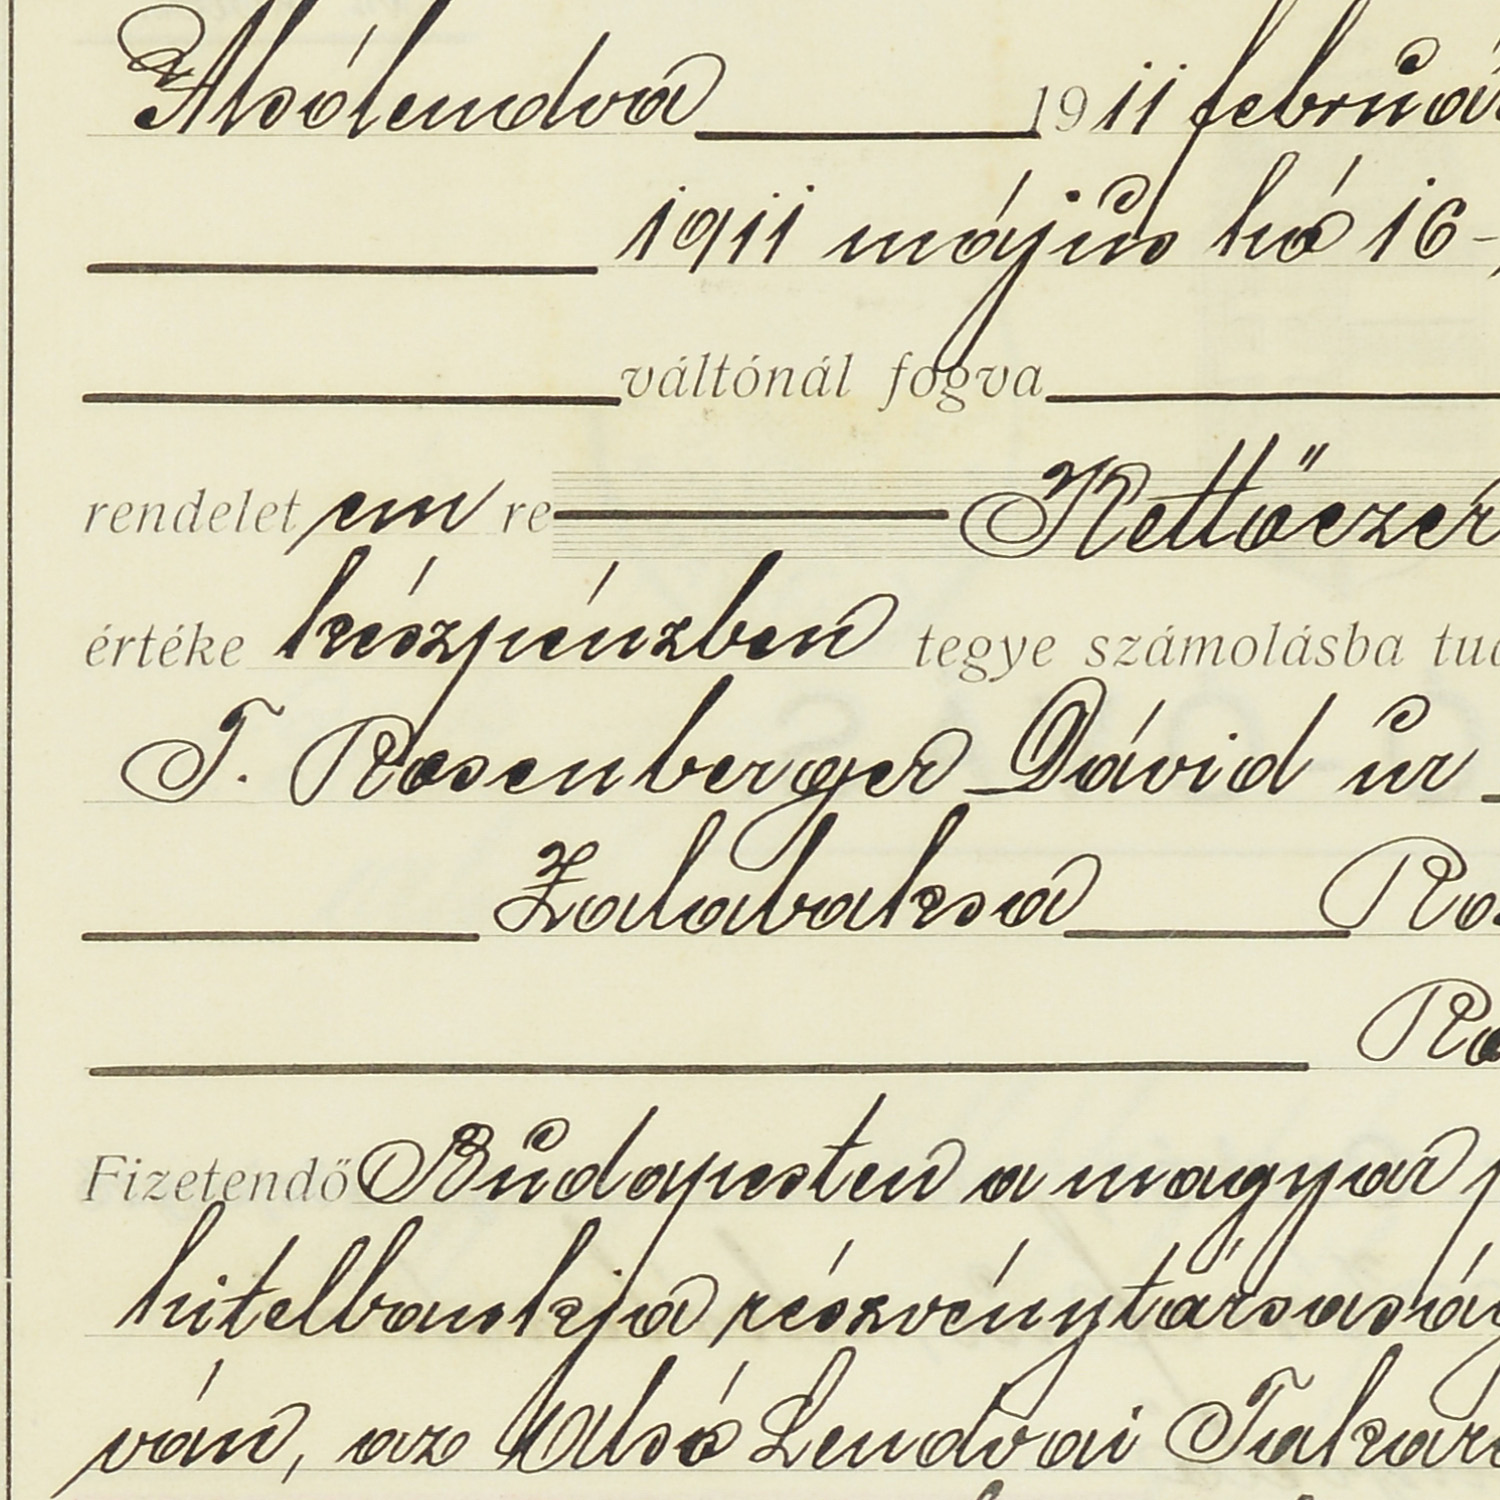 Alsólendva 1911 februá
1911 május hó 16-
váltónál fogva
rendelet em re Kettőezer
értéke készpénzben tegye számolásba tud
T. Rosenberger Dávid úr
Zalabaksa Ros
Ro
Fizetendő Budapesten a magyar p
hitelbankja részvénytársaság
ván, az Alsó Lendvai Takaré